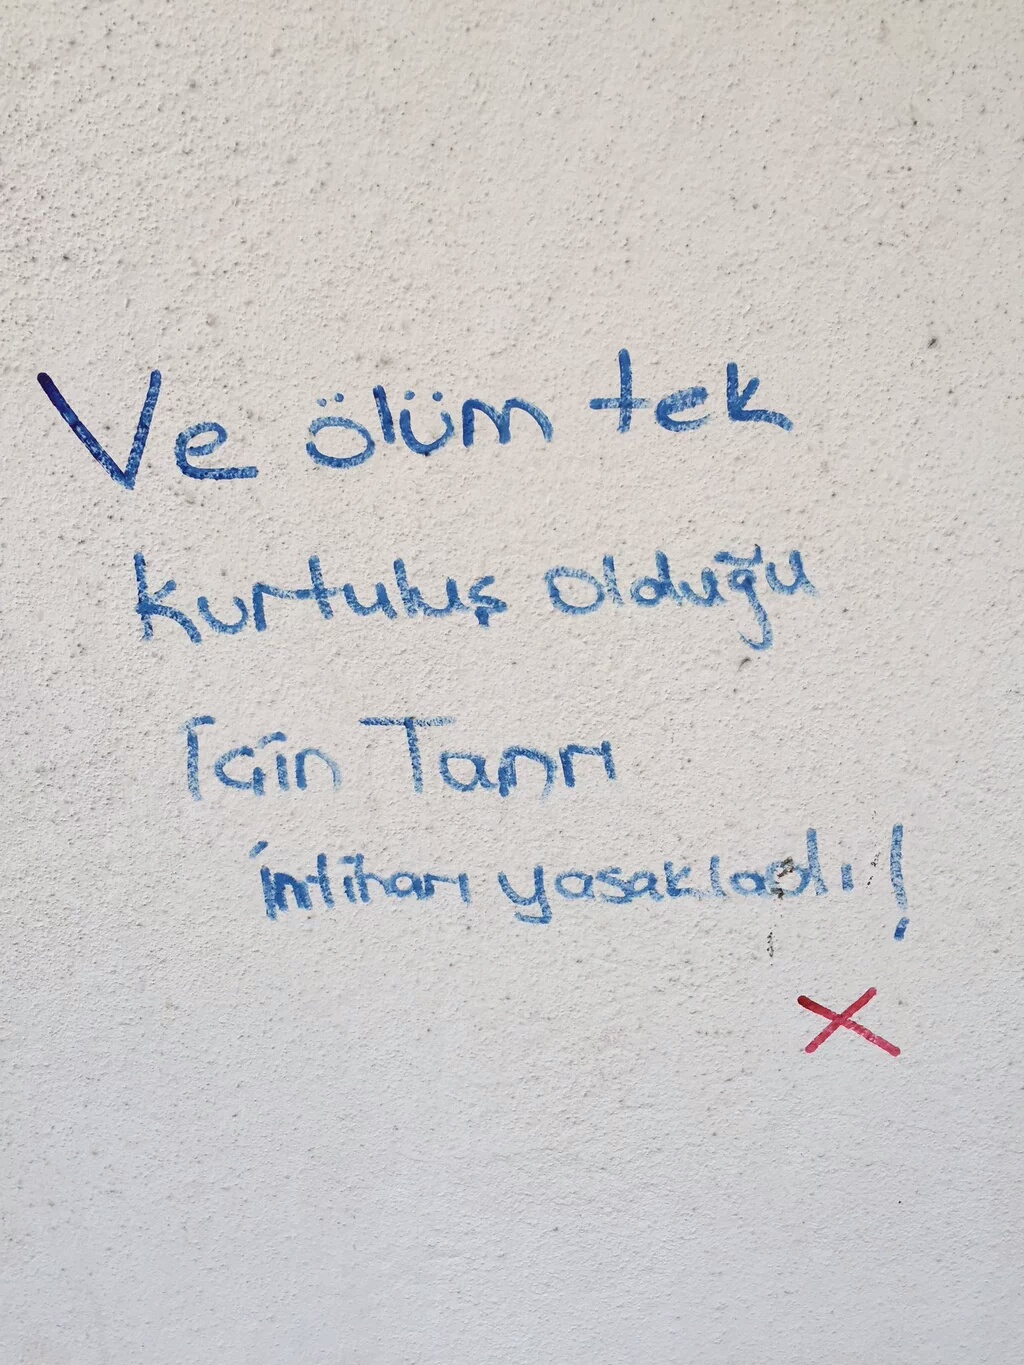 Ve ölüm tek
kurtuluş olduğu
İçin Tanrı
intiharı yasakladı!